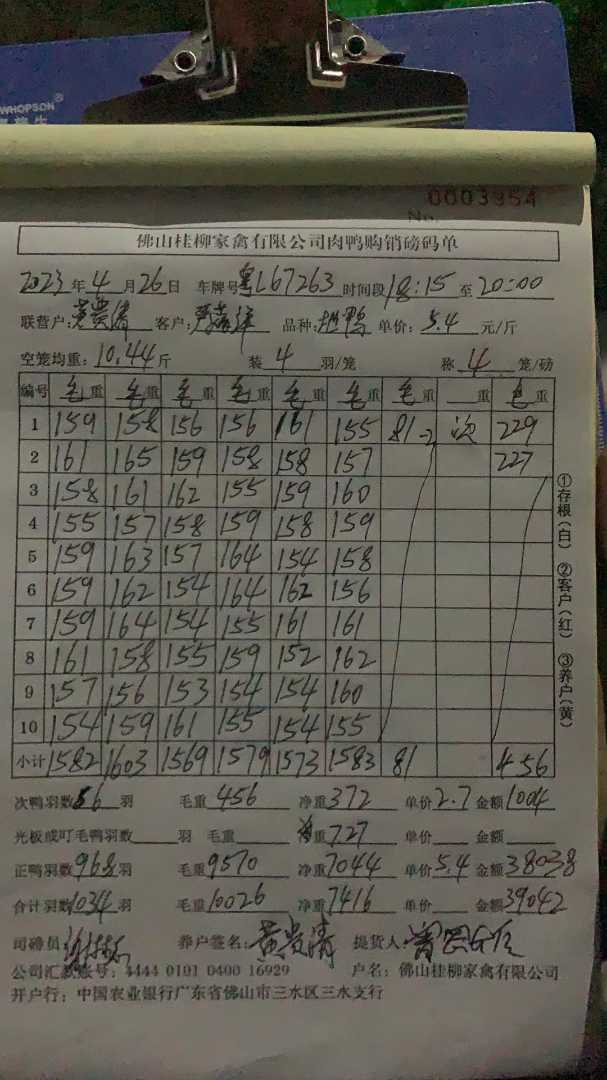 WHOPSON®
0003954
No.
佛山桂柳家禽有限公司肉鸭购销磅码单
2023年4月26日 车牌号粤L67263 时间段18:15至20:00
联营户:黄贵清 客户: 品种: 鸭 单价:5.4元/斤
空笼均重:10.44斤 装4羽/笼 称4笼/磅
编号 毛重 毛重 毛重 毛重 毛重 毛重 毛重 重 毛重
1 159 158 156 156 161 155 81-2 次 229
2 161 165 159 158 158 157 227
3 158 161 162 155 159 160
4 155 157 158 159 158 159
5 159 163 157 164 154 158
6 159 162 154 164 162 156
7 159 164 154 155 161 161
8 161 158 155 159 152 162
9 157 156 153 154 154 160
10 154 159 161 155 154 155
小计 1582 1603 1569 1579 1573 1583 81 456
次鸭羽数 羽 毛重456 净重372 单价2.7 金额1004
光板或叮毛鸭羽数 羽 毛重 净重727 单价 金额
正鸭羽数968羽 毛重9570 净重7044 单价5.4 金额38038
合计羽数1034羽 毛重10026 净重7416 单价 金额39042
司磅员: 养户签名:黄贵清 提货人:
公司汇款账号:4444 0101 0400 16929 户名:佛山桂柳家禽有限公司
开户行:中国农业银行广东省佛山市三水区三水支行
①存根(白) ②客户(红) ③养户(黄)